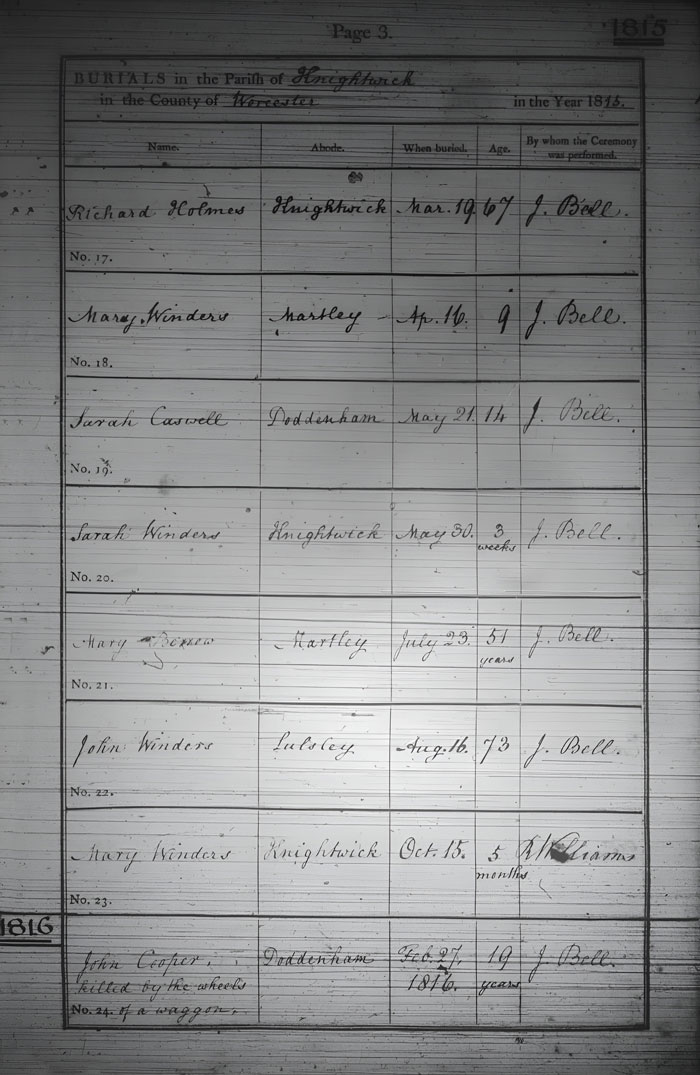 Page 3.
1815
BURIALS in the Parish of Knightwick
in the County of Worcester in the Year 1815.
Name. Abode. When buried. Age. By whom the Ceremony was performed.
Richard Holmes Knightwick Mar. 19 67 J. Bell.
No. 17.
Mary Winders Martley Ap. 16. 9 J. Bell.
No. 18.
Sarah Caswell Doddenham May 21. 14 J. Bell.
No. 19.
Sarah Winders Knightwick May 30. 3 weeks J. Bell.
No. 20.
Mary Berrow Martley July 23. 51 years J. Bell.
No. 21.
John Winders Lulsley Aug. 16. 73 J. Bell.
No. 22.
Mary Winders Knightwick Oct. 15. 5 months R Williams
No. 23.
1816
John Cooper, Doddenham Feb. 27. 19 J. Bell.
killed by the wheels 1816. years
No. 24. of a waggon.